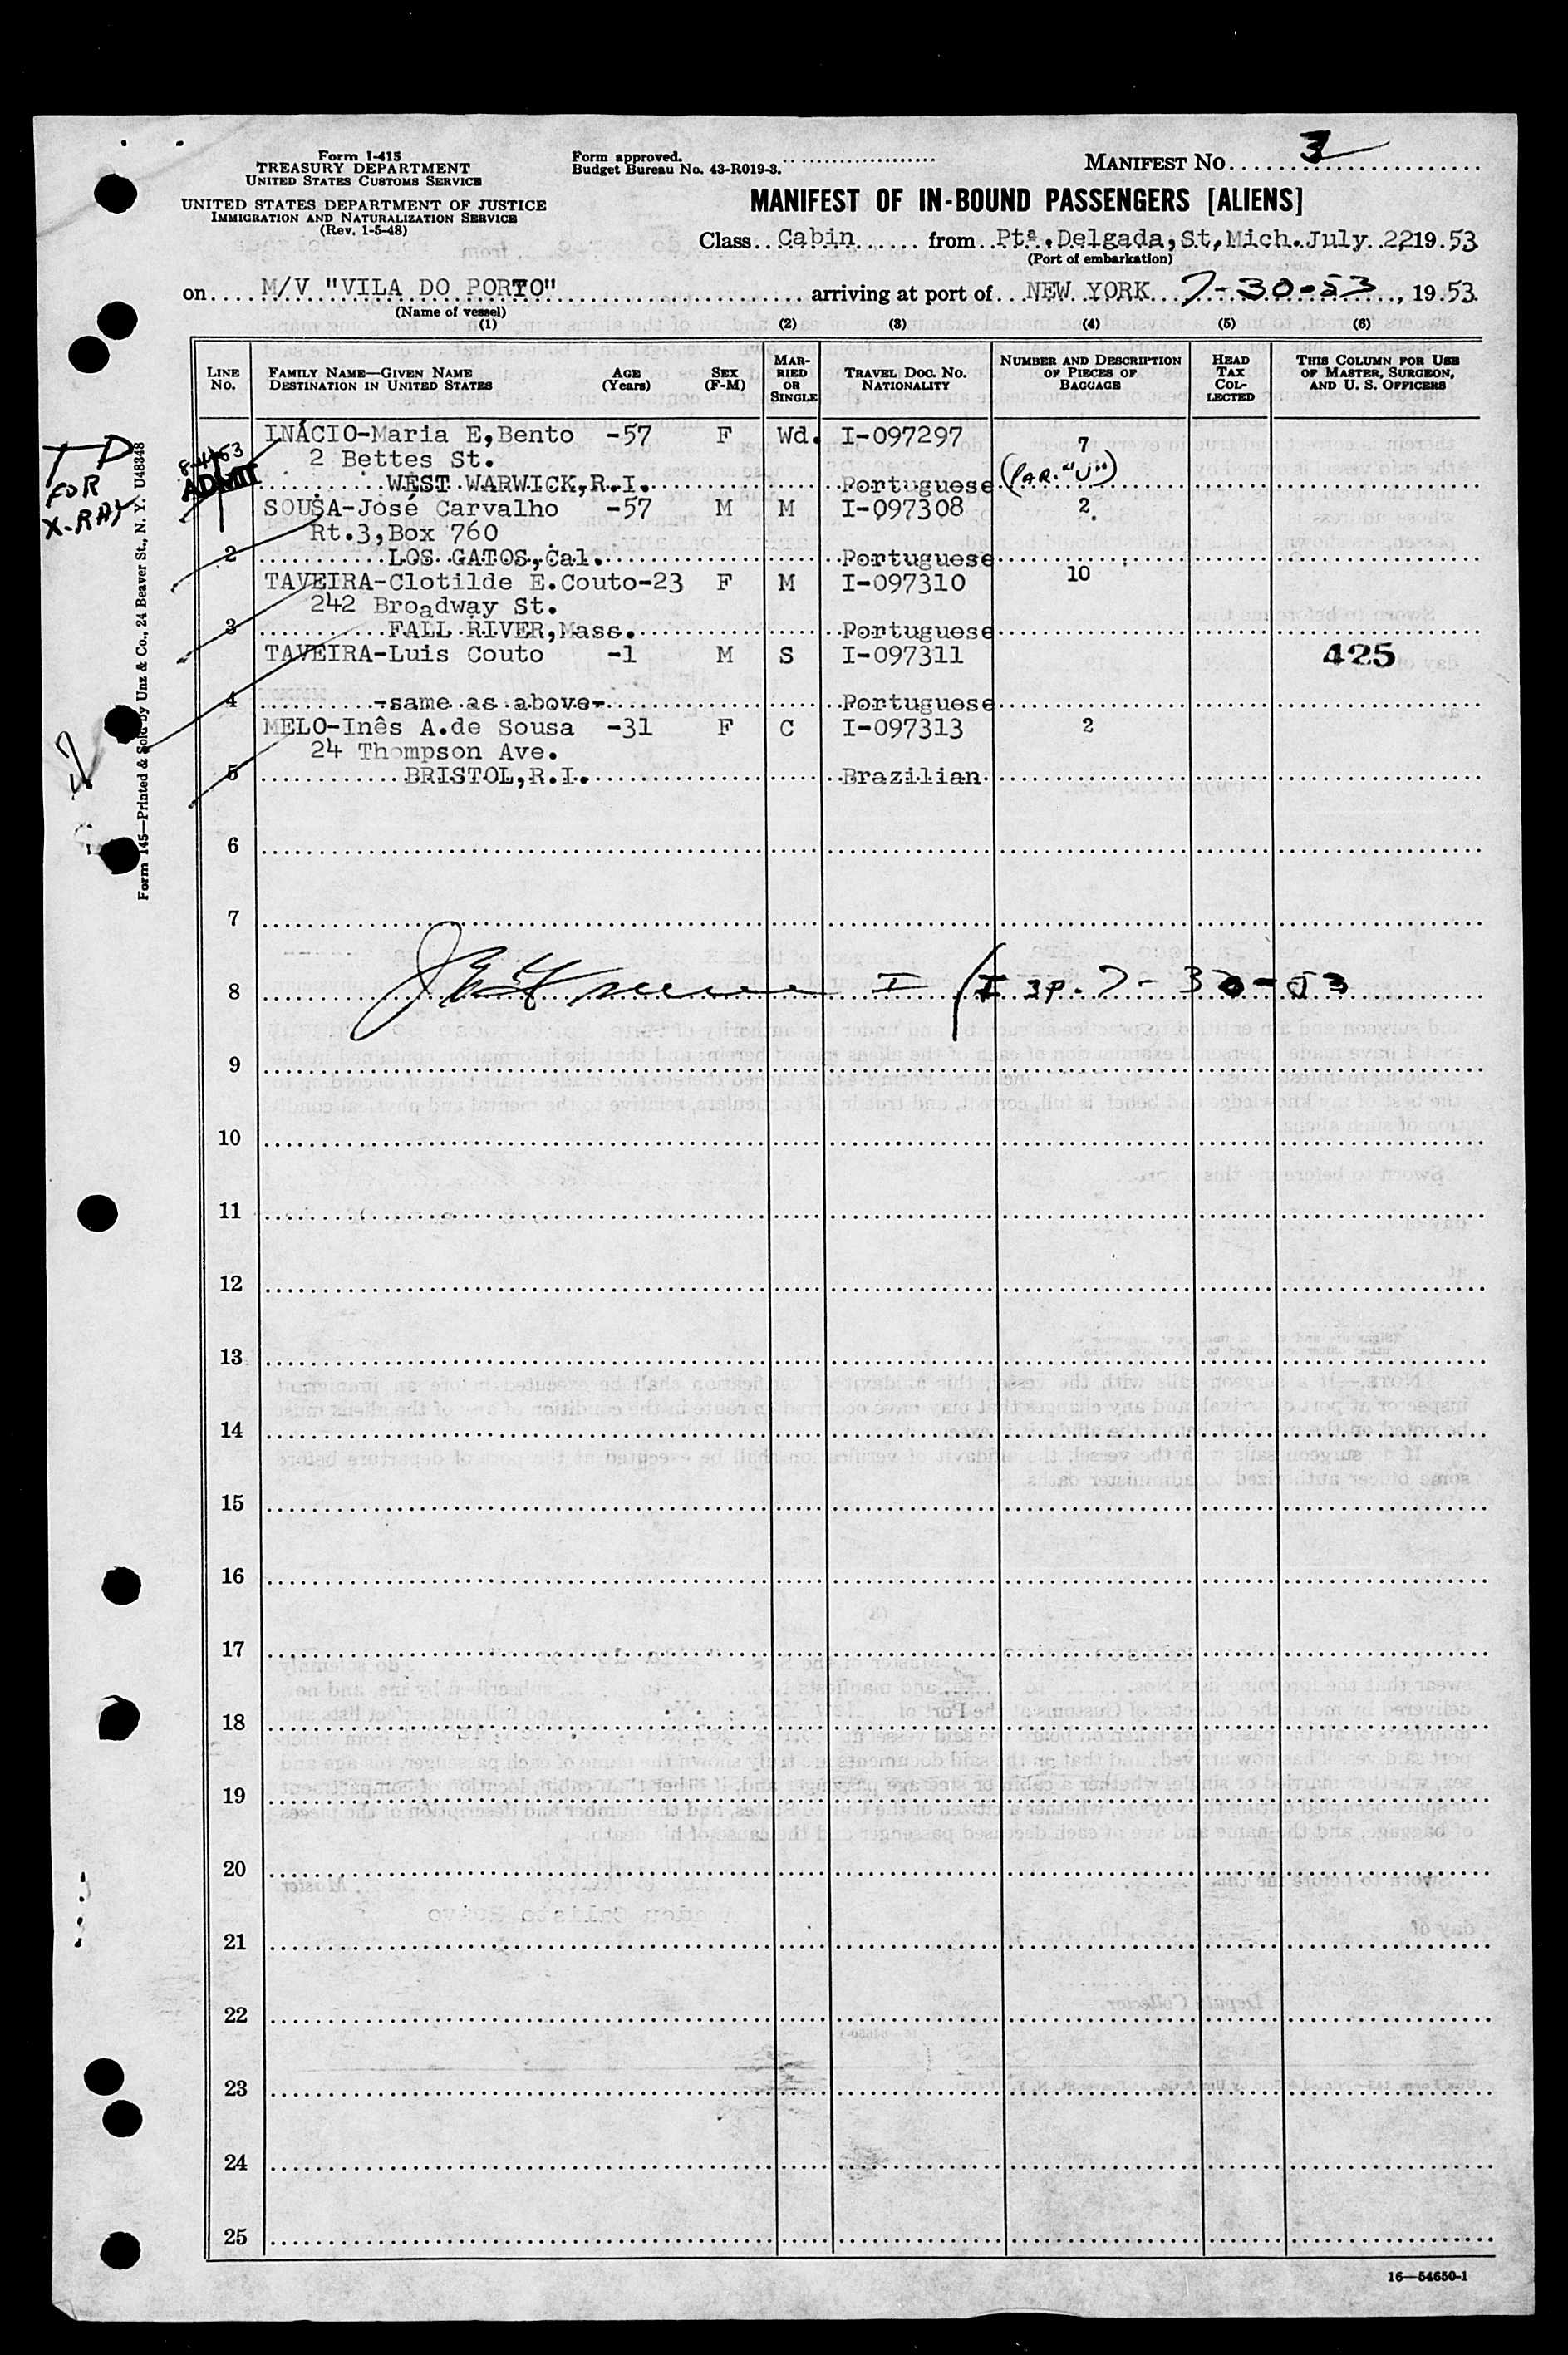 Form I-415
TREASURY DEPARTMENT
UNITED STATES CUSTOMS SERVICE
UNITED STATES DEPARTMENT OF JUSTICE
IMMIGRATION AND NATURALIZATION SERVICE
(Rev. 1-5-48)
Form approved.
Budget Bureau No. 43-R019-3.
MANIFEST NO. 3
MANIFEST OF IN-BOUND PASSENGERS [ALIENS]
Class Cabin from Ptª.Delgada,St,Mich.July 22 19 53
(Port of embarkation)
on M/V "VILA DO PORTO" arriving at port of NEW YORK 7-30-53, 19 53
(Name of vessel)
(1) (2) (3) (4) (5) (6)
LINE No. FAMILY NAME—GIVEN NAME DESTINATION IN UNITED STATES AGE (Years) SEX (F-M) MARRIED OR SINGLE TRAVEL DOC. NO. NATIONALITY NUMBER AND DESCRIPTION OF PIECES OF BAGGAGE HEAD TAX COLLECTED THIS COLUMN FOR USE OF MASTER, SURGEON, AND U. S. OFFICERS
T D
FOR
X-RAY
8-4-53
ADMIT
INÁCIO-Maria E,Bento -57 F Wd. I-097297 7
2 Bettes St. (PAR. "U")
WEST WARWICK,R.I. Portuguese
SOUSA-José Carvalho -57 M M I-097308 2
Rt.3,Box 760
2 LOS GATOS,Cal. Portuguese
TAVEIRA-Clotilde E.Couto-23 F M I-097310 10
242 Broadway St.
3 FALL RIVER,Mass. Portuguese
TAVEIRA-Luis Couto -1 M S I-097311 425
4 -same as above- Portuguese
MELO-Inês A.de Sousa -31 F C I-097313 2
24 Thompson Ave.
5 BRISTOL,R.I. Brazilian
6
7
8 I I 7-30-53
9
10
11
12
13
14
15
16
17
18
19
20
21
22
23
24
25
16—54650-1
Form 145—Printed & Sold by Unz & Co., 24 Beaver St., N. Y. U48348